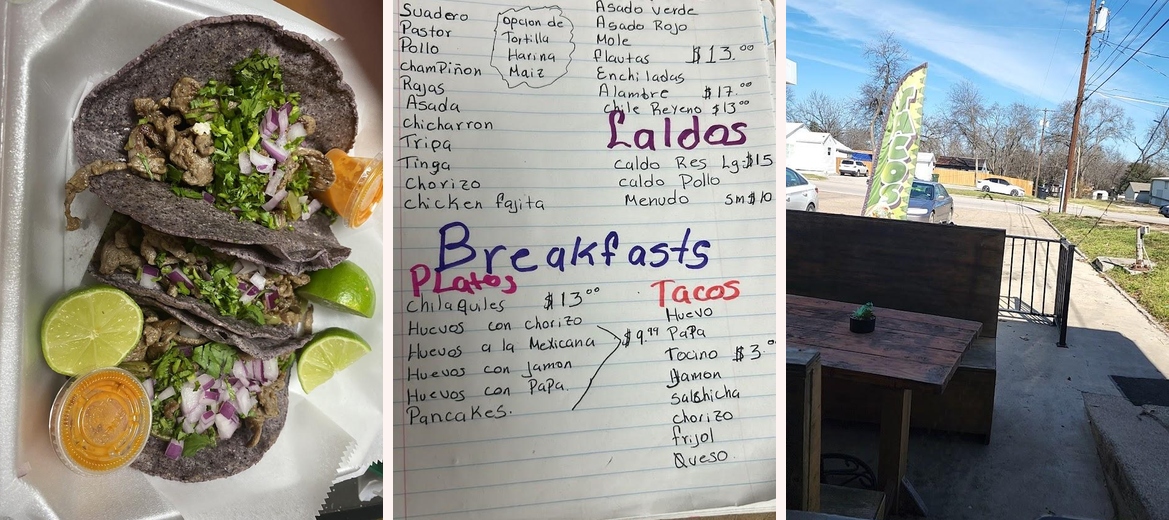 Suadero
Pastor
Pollo
ChamPiñon
Rajas
Asada
Chicharron
Tripa
Tinga
Chorizo
chicken fajita
opcion de
Tortilla
Harina
Maiz
Asado verde
Asado Rojo
Mole
flautas $13.00
Enchiladas
Alambre $17.00
Chile Reyeno $13.00
Caldos
caldo Res Lg.$15
caldo Pollo
Menudo Sm $10
Breakfasts
PLatos
Chilaquiles $13.00
Huevos con chorizo
Huevos a la Mexicana $9.99
Huevos con Jamon
Huevos con PaPa.
Pancakes.
Tacos
Huevo
PaPa
Tocino $3.00
Jamon
Salshicha
chorizo
frijol
Queso